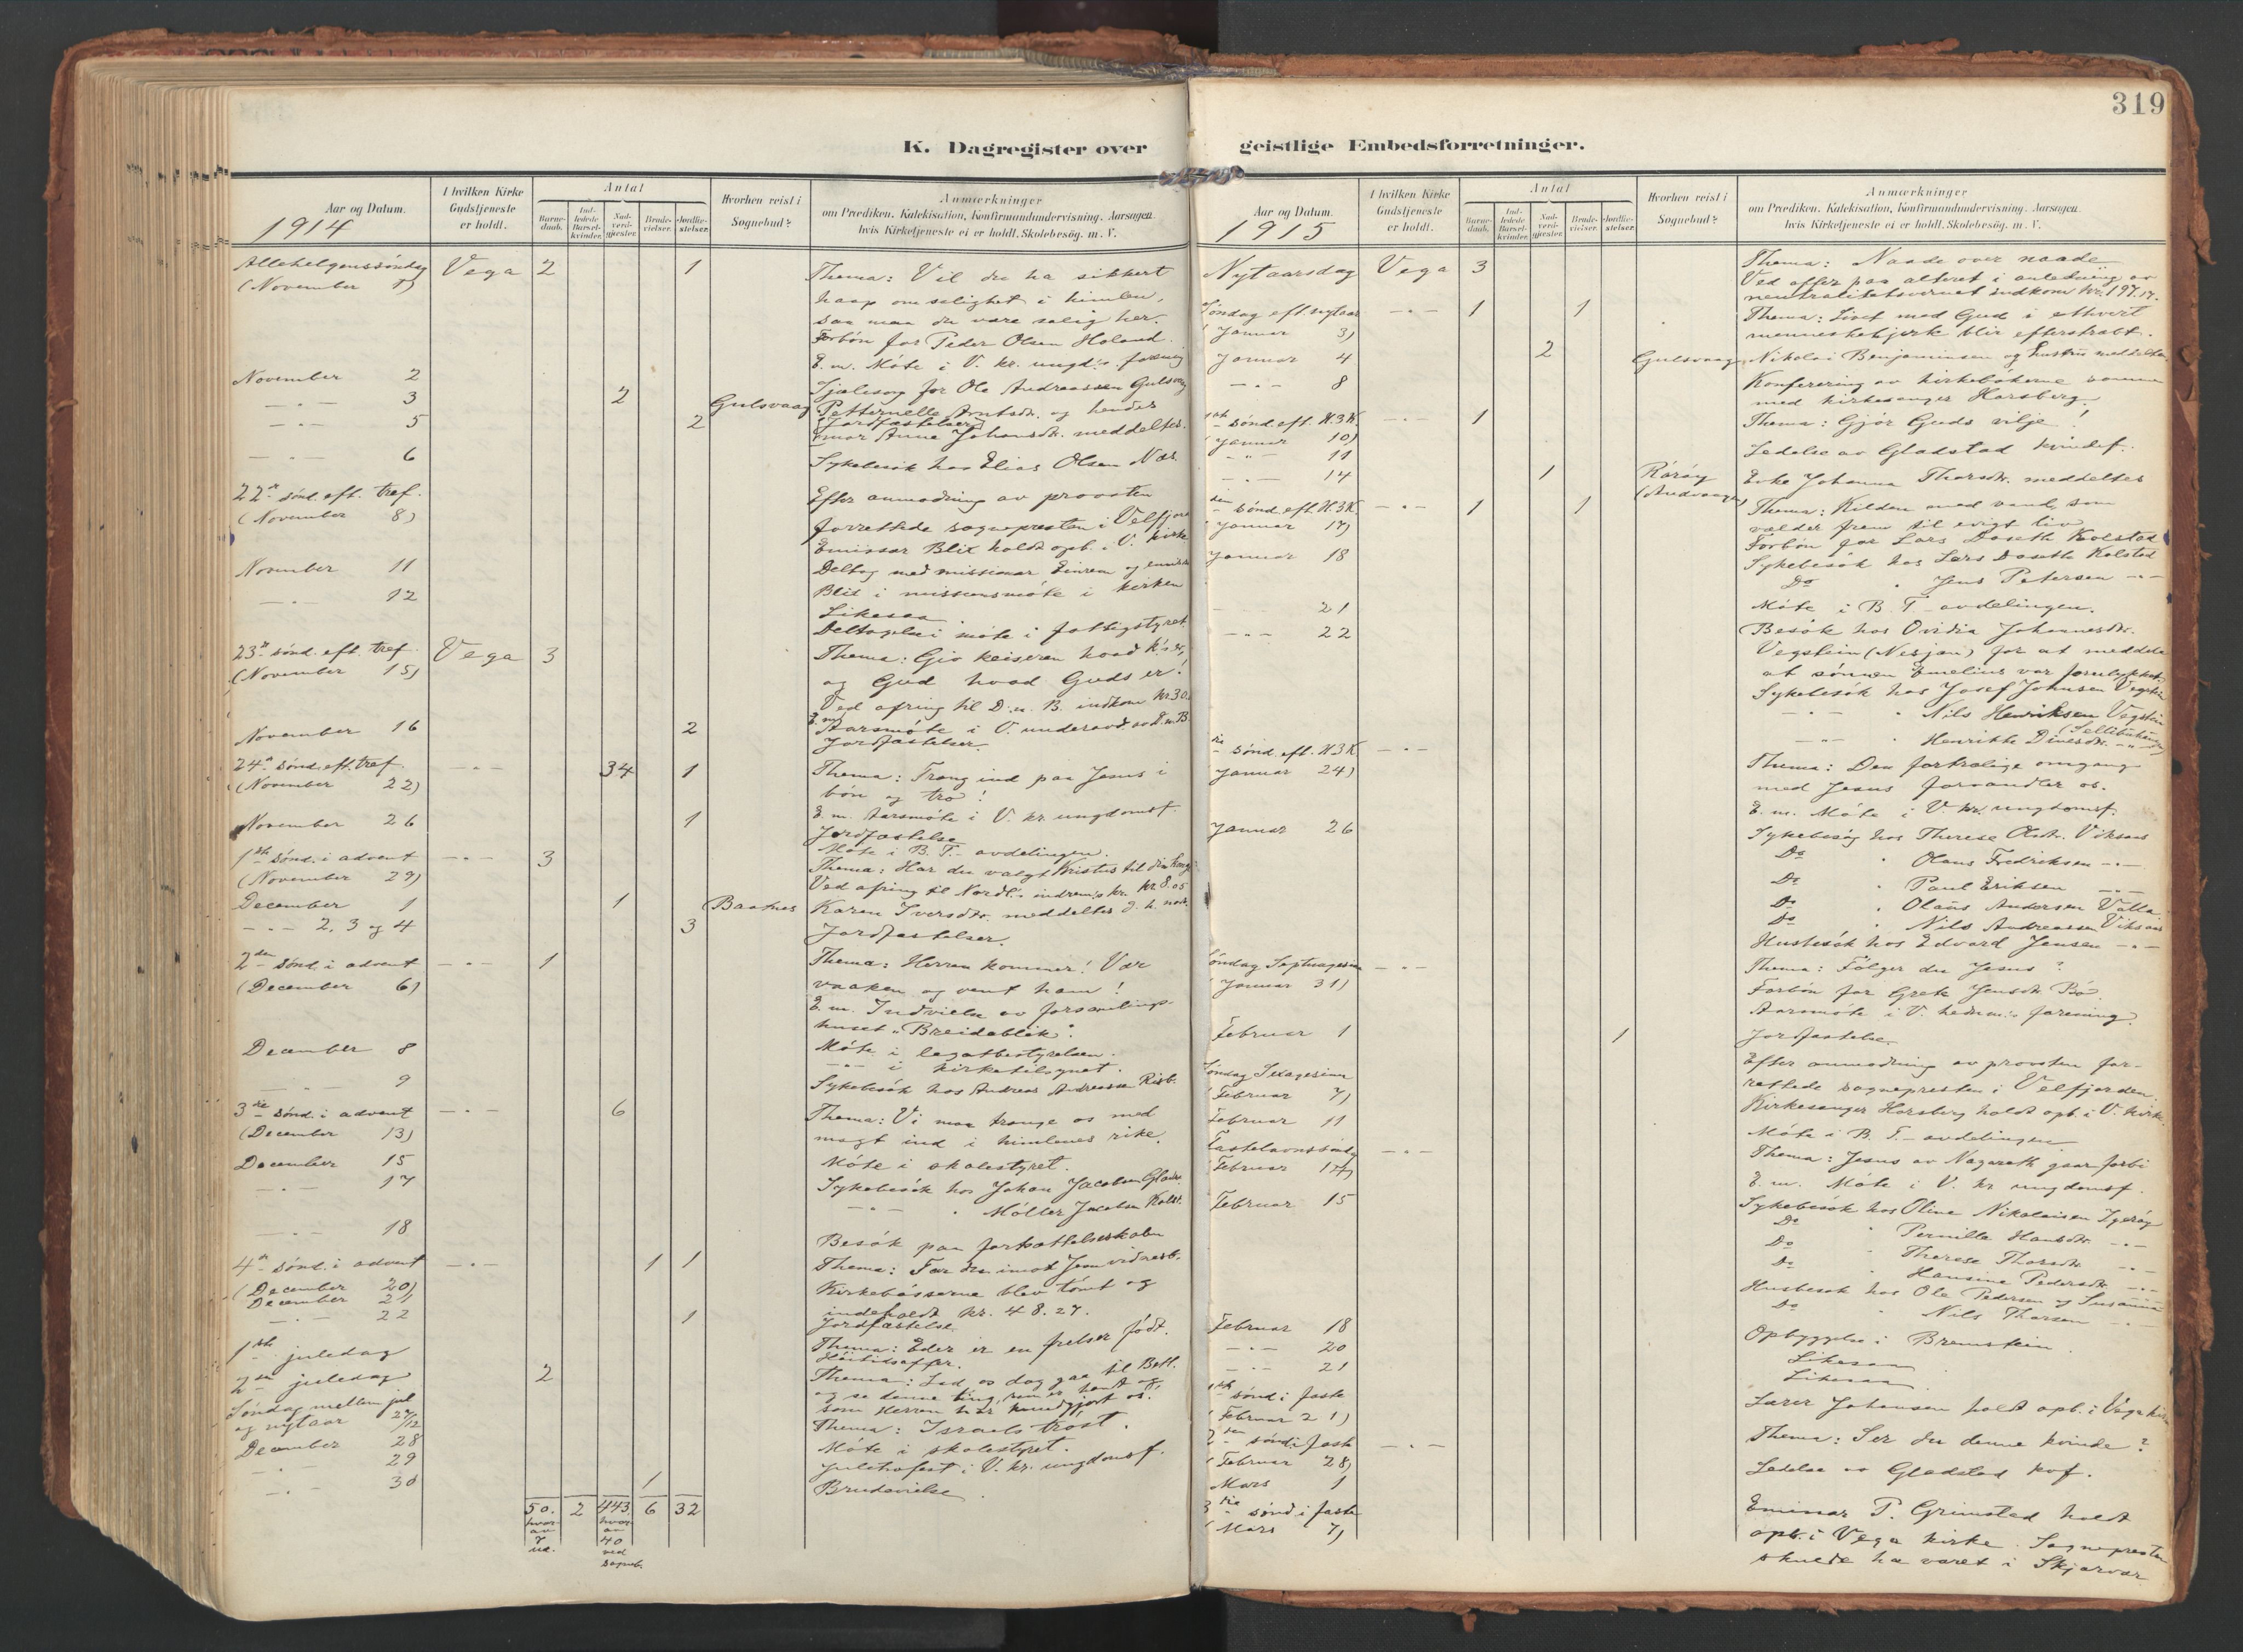 319
K. Dagregister over geistlige Embedsforretninger.
Aar og Datum.
1914
I hvilken Kirke Gudstjeneste er holdt.
Antal
Barne-daab.
Ind-ledede Barsel-kvinder.
Nad-verd-gjester.
Brude-vielser.
Jordfæ-stelser.
Hvorhen reist i Sognebud?
Anmærkninger
om Prædiken, Katekisation, Konfirmandundervisning, Aarsagen
hvis Kirketjeneste ei er holdt, Skolebesøg, m. V.
Allehelgenssøndag Vega 2 1 Thema: Vil du ha sikkert
(November 1) haap om salighet i himlen,
saa maa du være salig her.
Forbøn for Peder Olsen Holand.
E. m. Møte i V. kr. ungd.s forening
November 2 Sjælesorg for Ole Andreassen Gulsvaag
—"— 3 2 Gulsvaag Petternelle Arntsdtr. og hendes
—"— 5 2 [Jordfæstelser]
mor Anne Johansdtr. meddeltes.
—"— 6 Sykebesøk hos Elias Olsen Næs
22de sønd. eft. tref. Efter anmodning av provsten
(November 8) forrettede sognepresten i Velfjord
Emissær Blix holdt opb. i V. kirke
November 11 Deltog med missionær Einrem og emissær
Blix i missionsmøte i kirken
—"— 12 Likesaa.
Deltagelse i møte i fattigstyret.
23de sønd. eft. tref. Vega 3 Thema: Giv keiseren hvad k's er,
(November 15) og Gud hvad Guds er!
Ved ofring til D. n. B. indkom kr. 30.
E. m. Aarsmøte i V. underavd. av D. n. B.
November 16 2 Jordfæstelser
24de sønd. eft. tref. —"— 34 1 Thema: Træng ind paa Jesus i
(November 22) bøn og tro!
E. m. Aarsmøte i V. kr. ungdomsf.
November 26 1 Jordfæstelse
Møte i B. T.- avdelingen.
1ste sønd. i advent —"— 3 Thema: Har du valgt Kristus til din konge
(November 29) Ved ofring til Nordl.s indrem.s kr. kr. 8.05
December 1 1 Baatnes Karen Iversdtr. meddeltes d. h. nadv.
—"— 2, 3 og 4 3 Jordfæstelser.
2den sønd. i advent —"— 1 Thema: Herren kommer! Vær
(December 6) vaaken og vent ham!
E. m. Indvielse av forsamlings-
huset "Breidablik".
December 8 Møte i legatbestyrelsen.
—"— i kirketilsynet.
—"— 9 Sykebesøk hos Andreas Andreassen Risb.
3die sønd. i advent —"— 6 Thema: Vi maa trænge os med
(December 13) magt ind i himlenes rike.
December 15 Møte i skolestyret.
—"— 17 Sykebesøk hos Johan Jacobsen Glads.
—"— " Møller Jacobsen Kolst.
—"— 18 Besøk paa fortsættelsesskolen
4de sønd. i advent —"— 1 1 Thema: Tar du imot Jesu vidnesb.
(December 20) Kirkebøsserne blev tømt og
December 21 indeholdt kr. 48.27.
—"— 22 1 Jordfæstelse
1ste juledag Thema: Eder er en frelser født.
Høitidsoffer.
2den juledag 2 Thema: Lad os dog gaa til Betl.
og se denne ting, som er hændt og
som Herren har kundgjort os!
Søndag mellem jul og nytaar 27/12 Thema: Israels trøst.
December 28 Møte i skolestyret.
—"— 29 Juletræfest i V. kr. ungdomsf.
—"— 30 1 Brudevielse
50. 2 443 6 32
hvor-av 7 ue.
hvor-av 40 ved sogneb.
Aar og Datum.
1915
I hvilken Kirke Gudstjeneste er holdt.
Antal
Barne-daab.
Ind-ledede Barsel-kvinder.
Nad-verd-gjester.
Brude-vielser.
Jordfæ-stelser.
Hvorhen reist i Sognebud?
Anmærkninger
om Prædiken, Katekisation, Konfirmandundervisning, Aarsagen
hvis Kirketjeneste ei er holdt, Skolebesøg, m. V.
Nytaarsdag Vega 3 Thema: Naade over naade
Ved offer paa alteret i anledning av
neutralitetsvernet indkom kr. 197.17.
Søndag eft. nytaar —"— 1 1 Thema: Livet med Gud i ethvert
(Januar 3) menneskehjerte blir efterstræbt.
Januar 4 2 Gulsvaag Nikolai Benjaminsen og hustru meddeltes
—"— 8 Konferering av kirkebøkerne sammen
med kirkesanger Horsberg.
1ste sønd. eft. H.3K. —"— 1 Thema: Gjør Guds vilje!
(Januar 10)
—"— 11 Ledelse av Gladstad kvindef.
—"— 14 1 Rørøy (Andvaagen) Enke Johanna Thorsdtr. meddeltes
2den sønd. eft. H.3K. —"— 1 1 Thema: Kilden med vand, som
(Januar 17) vælder frem til evigt liv
Forbøn for Lars Doseth Kolstad
Januar 18 Sykebesøk hos Lars Doseth Kolstad
Do " Jens Petersen —"—
—"— 21 Møte i B. T.- avdelingen.
—"— 22 Besøk hos Ovidia Johannesdtr.
Vegstein (Nesjan) for at meddele
at sønnen Emelius var forulykket.
Sykebesøk hos Josef Johnsen Vegstein
—"— " Nils Henriksen Vegstein
—"— " Henrikke Dinesdtr. —"—
3die sønd. eft. H3K —"— Thema: Den fortrolige omgang
(Januar 24) med Jesus forvandler os.
E. m. Møte i V. kr. ungdomsf.
Januar 26 Sykebesøg hos Therese Olsdtr. Viksaas
Do " Olaus Fredriksen —"—
Do " Paul Eriksen —"—
Do " Olaus Andersen Valla
Do " Nils Andreassen Viksaas
Husbesøk hos Edvard Jensen —"—
Søndag Septuagesima —"— Thema: Følger du Jesus?
(Januar 31) Forbøn for Grete Jensdtr. Bø.
Aarsmøte i V. hedn.m.s forening.
Februar 1 1 Jordfæstelse
Søndag Sexagesima Efter anmodning av provsten for-
(Februar 7) rettede sognepresten i Velfjorden.
Kirkesanger Horsberg holdt opb. i V. kirke.
Februar 11 Møte i B. T.- avdelingen
Fastelavnssøndag —"— Thema: Jesus av Nazareth gaar forbi
(Februar 14) E. m. Møte i V. kr. ungdomsf.
Februar 15 Sykebesøk hos Oline Nikolaisen Igerøy
Do " Pernille Hansdtr. —"—
Do " Therese Thorsdtr. —"—
Do " Hansine Pedersdtr. —"—
Husbesøk hos Ole Pedersen og Susanna
Do " Nils Thorsen —"—
Februar 18 Opbyggelse i Bremstein.
—"— 20 Likesaa
—"— 21 Likesaa
1ste sønd. i faste Lærer Johansen holdt opb. i Vega kirke
(Februar 21)
2den sønd. i faste —"— Thema: Ser du denne kvinde?
(Februar 28)
Mars 1 Ledelse av Gladstad kvf.
3die sønd. i faste Emissær P. Grimstad holdt
(Mars 7) opb. i Vega kirke. Sognepresten
skulde ha været i Skjærvær